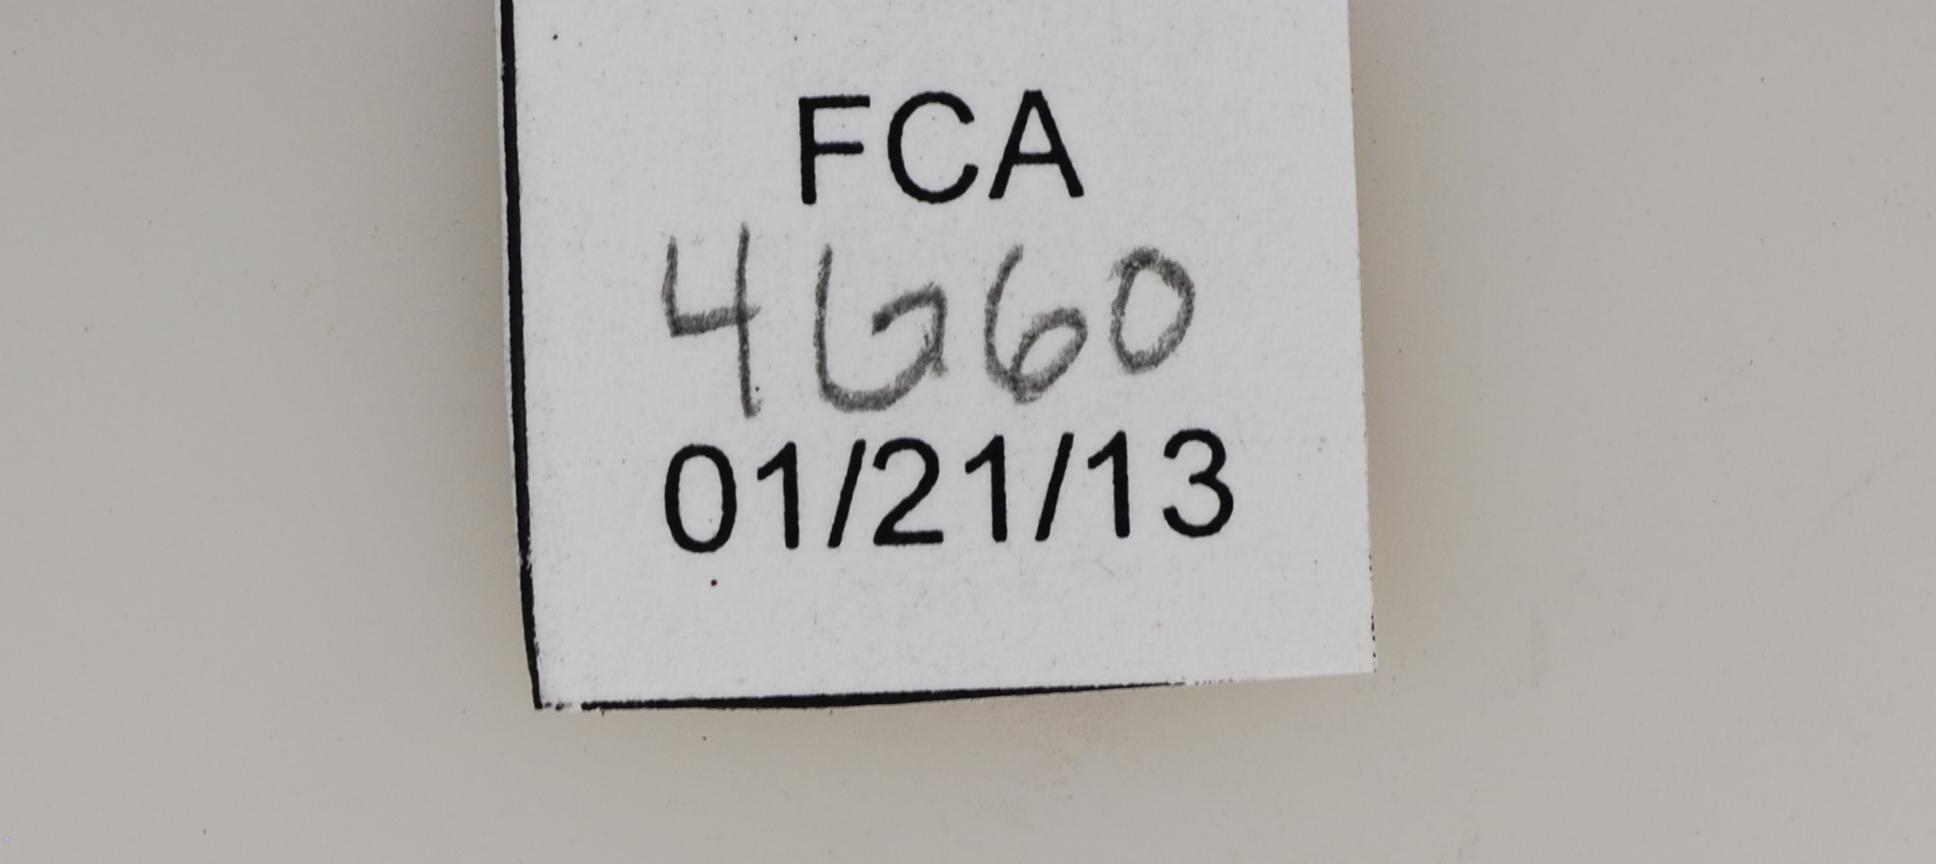 FCA
4660
01/21/13